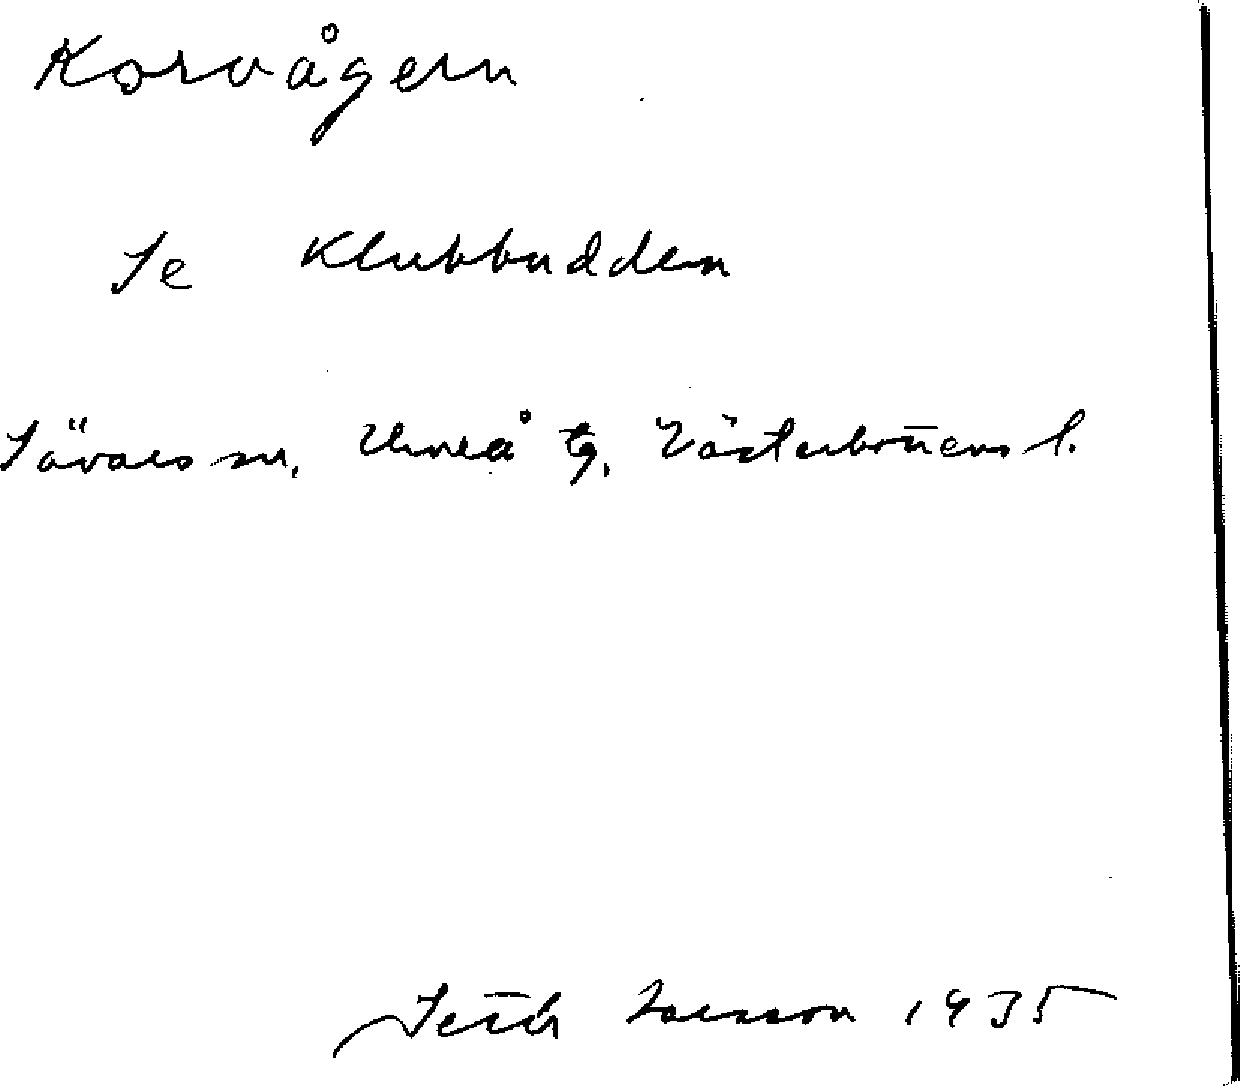 Korvågern
Se Klubbudden
Sävars sn, Umeå tg, Västerbottens l.
Seth Larsson 1935